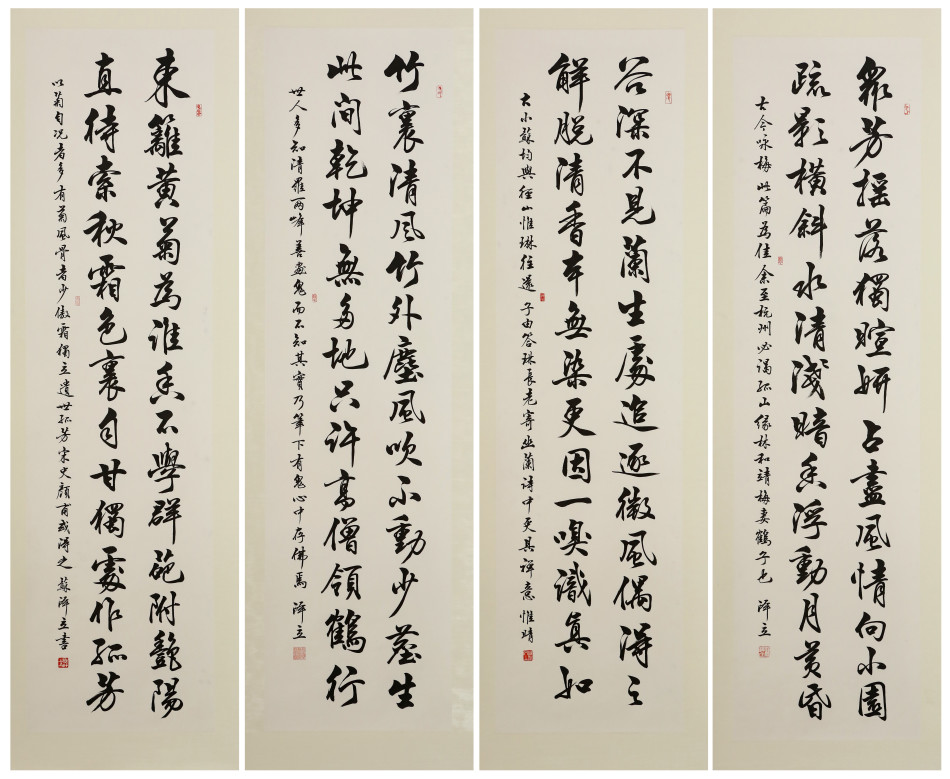 眾芳搖落獨暄妍占盡風情向小園
疏影橫斜水清淺暗香浮動月黃昏
古今咏梅此篇為佳余至杭州必謁孤山緣林和靖梅妻鶴子也 澤立
谷深不見蘭生處追逐微風偶得之
解脫清香本無染更因一嗅識真如
大小蘇均與徑山惟琳往還子由答琳長老寄幽蘭詩中更具禪意 惟晴
竹裏清風竹外塵風吹不動少塵生
此間乾坤無多地只許高僧領鶴行
世人多知清羅兩峰善畫鬼而不知其實乃筆下有鬼心中存佛焉 澤立
東籬黃菊為誰香不學群葩附艷陽
直待索秋霜色裏自甘獨處作孤芳
以菊自况者多有菊風骨者少傲霜獨立遺世孤芳宋史顏甫或得之 蘇澤立書